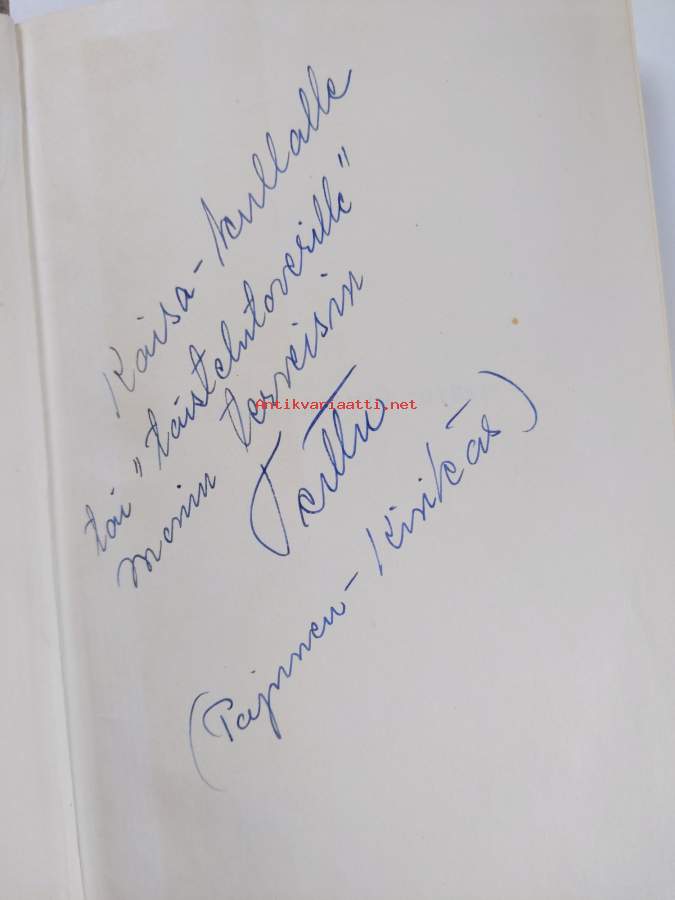 Kaisa-kullalle
tai "taistelutoverille"
monin terveisin
Terttu
(Pajunen-Kivikäs)
Antikvariaatti.net